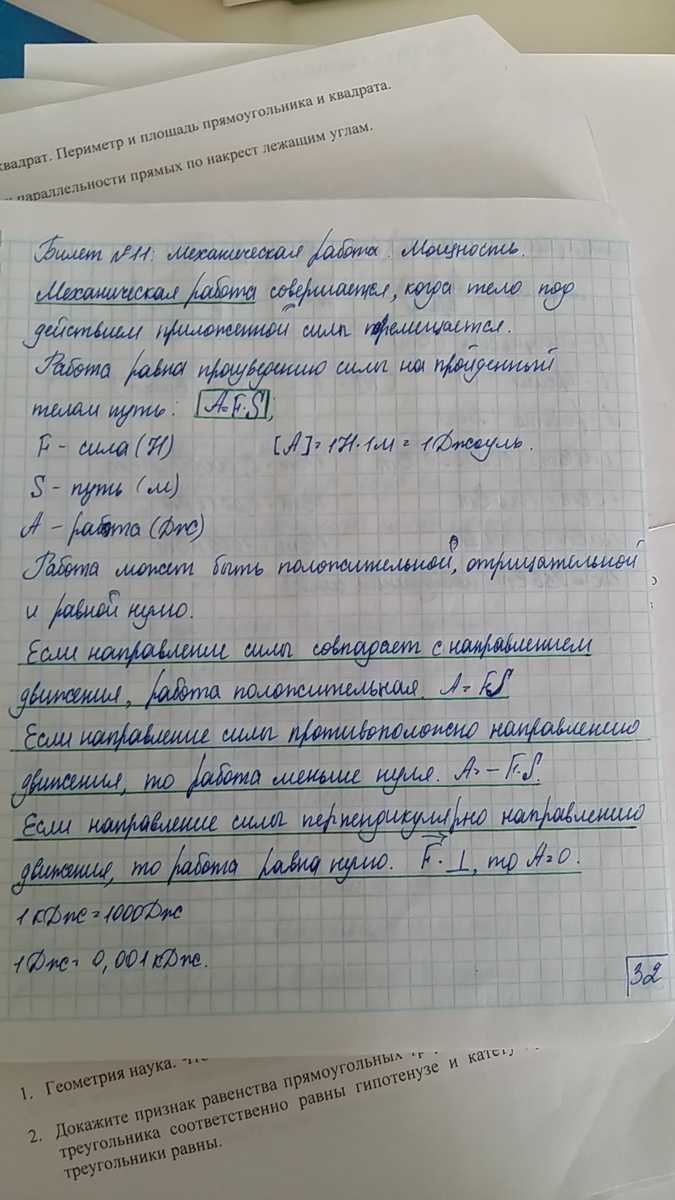 квадрат. Периметр и площадь прямоугольника и квадрата.
параллельности прямых по накрест лежащим углам.
Билет №11: Механическая работа. Мощность.
Механическая работа совершается, когда тело под
действием приложенной силы перемещается.
Работа равна произведению силы на пройденный
телом путь: A=F·S;
F - сила (Н) [A]=1Н·1м = 1Джоуль.
S - путь (м)
A - работа (Дж)
Работа может быть положительной, отрицательной
и равной нулю.
Если направление силы совпадает с направлением
движения, работа положительная. A= FS
Если направление силы противоположно направлению
движения, то работа меньше нуля. A= - F·S.
Если направление силы перпендикулярно направлению
движения, то работа равна нулю. F · ⊥, то A=0.
1 кДж = 1000Дж
1 Дж = 0,001 кДж.
32
1. Геометрия наука.
2. Докажите признак равенства прямоугольных
треугольника соответственно равны гипотенузе и катету
треугольники равны.